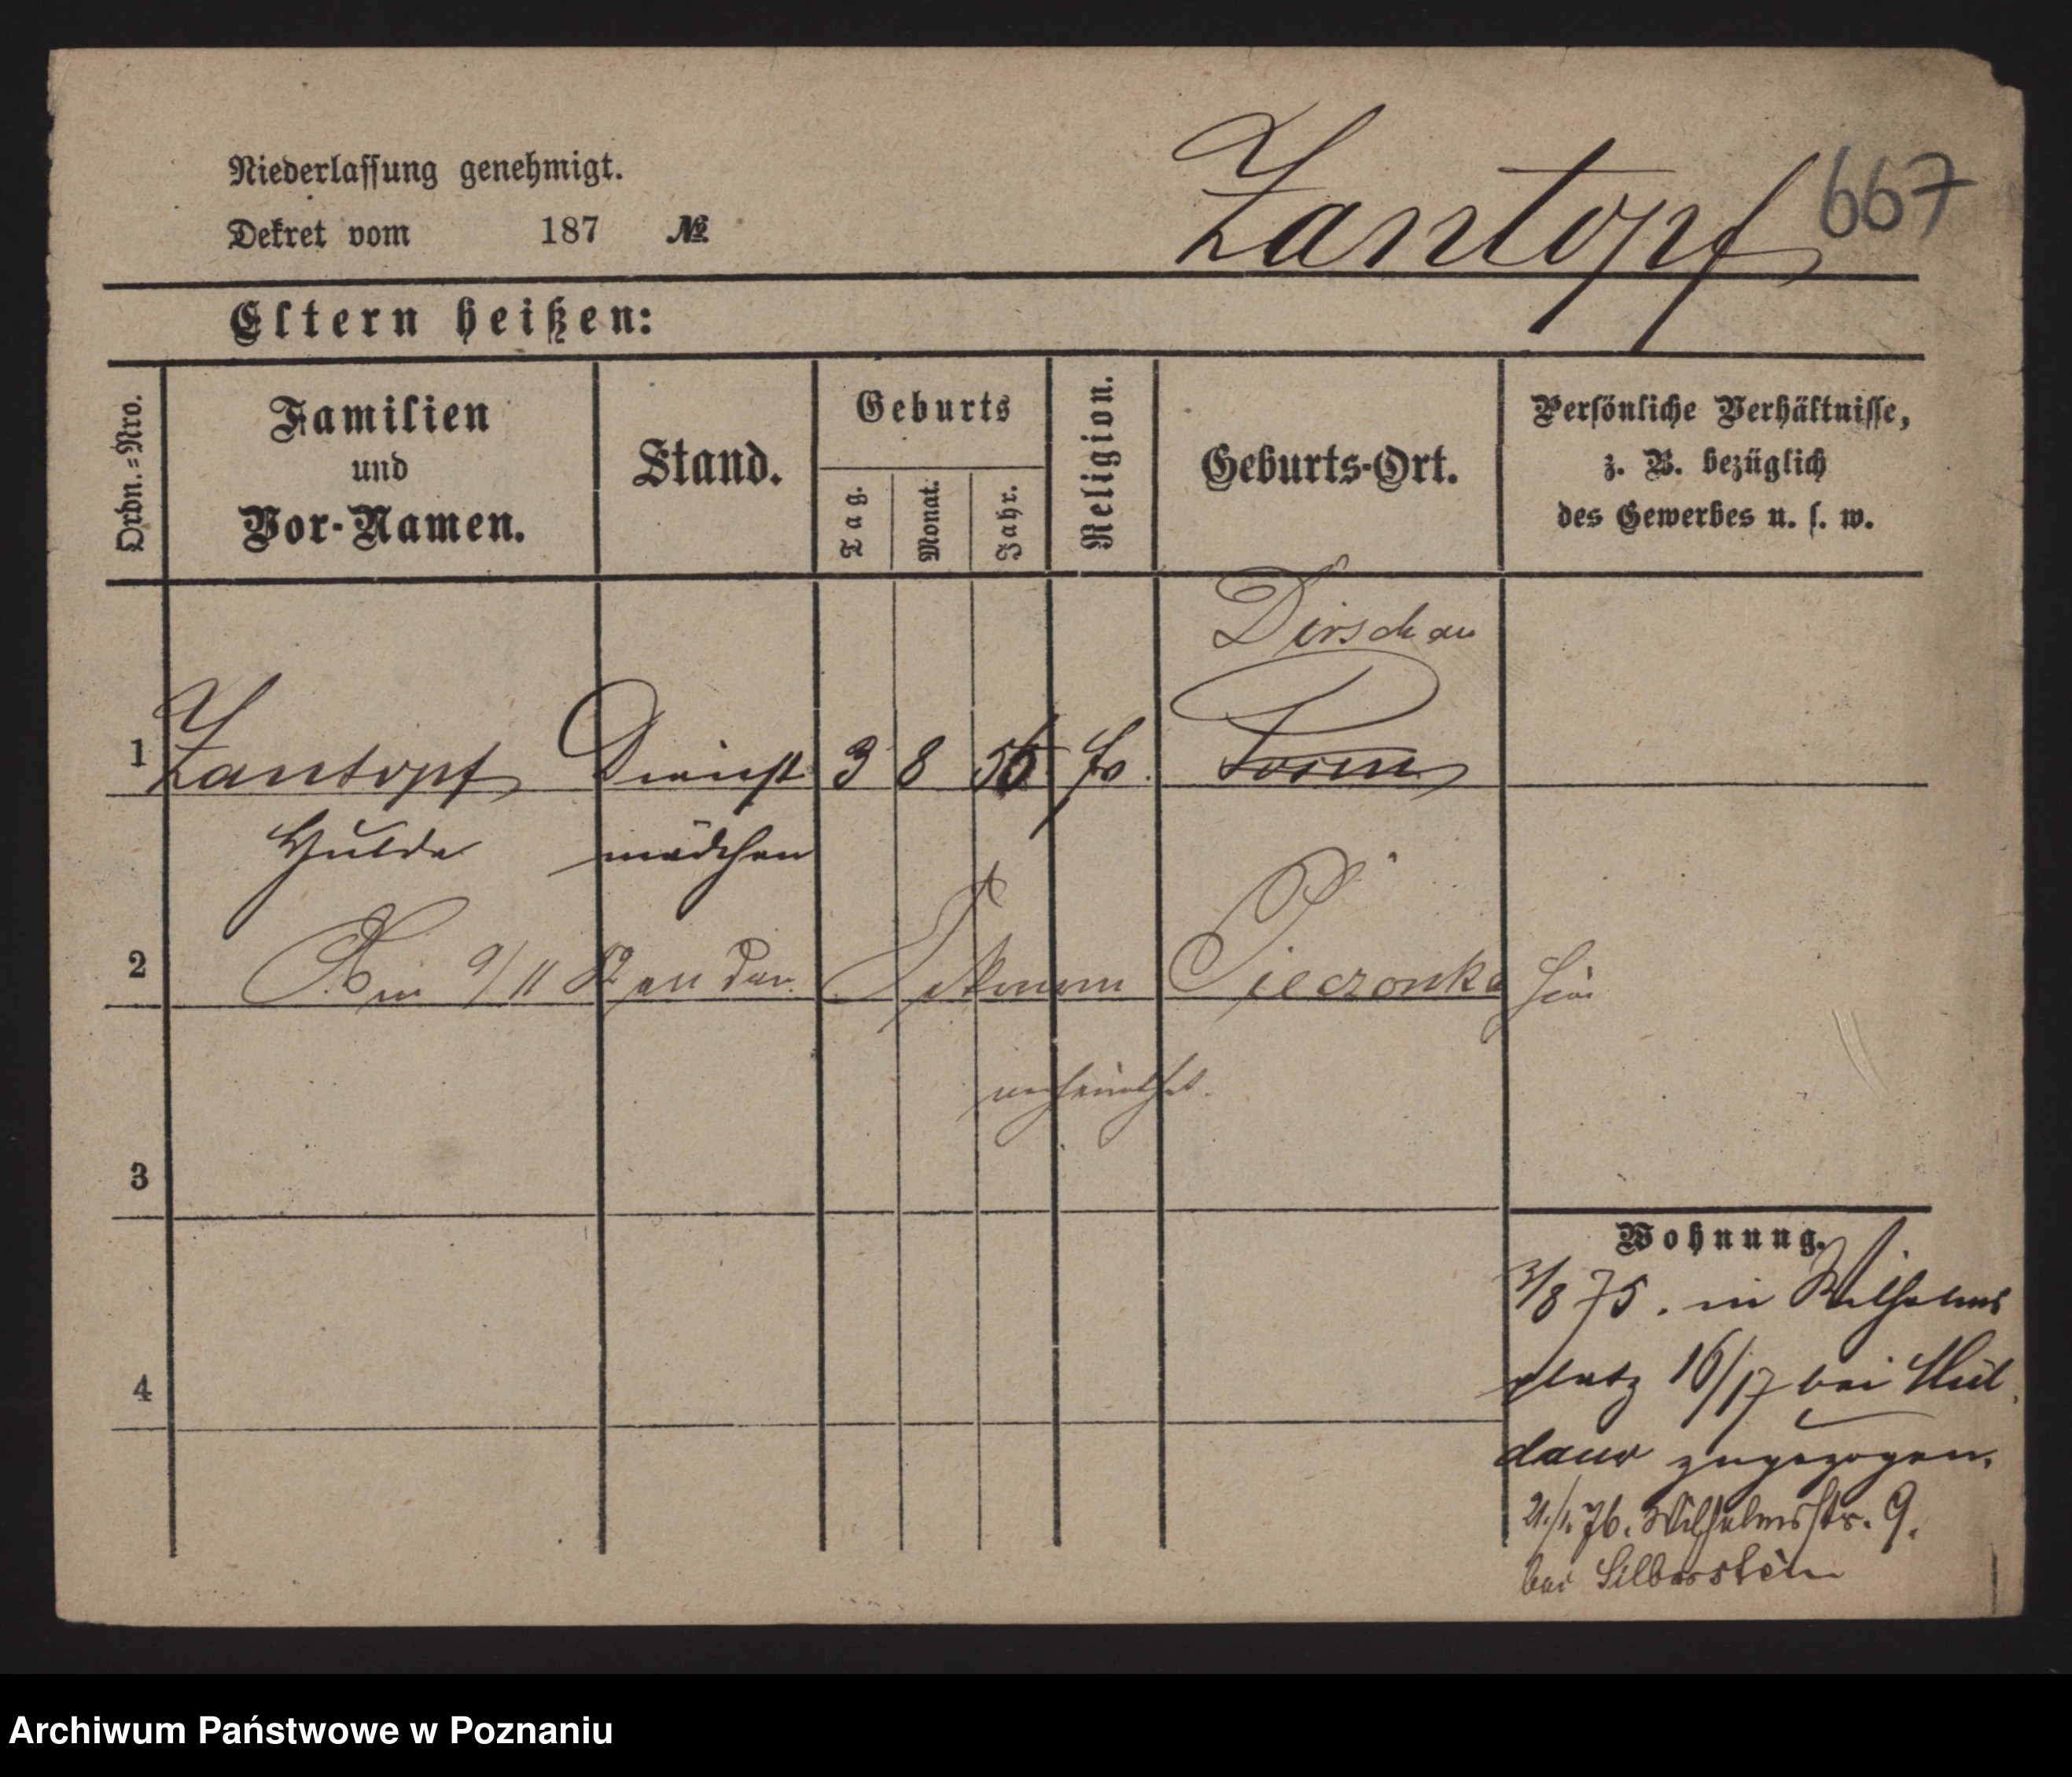 Zantopf
667
Niederlassung genehmigt.
Dekret vom 187 №
Eltern heißen:
Ordn.=Nro.
Familien
und
Vor-Namen.
Stand.
Geburts
Tag.
Monat.
Jahr.
Religion.
Geburts-Ort.
Persönliche Verhältnisse,
z. B. bezüglich
des Gewerbes u. s. w.
Dirschau
1 Zantopf Dienst 3 8 Posen
Hulda mädchen
2 9/11 an den Pieczonka hier
verheirathet.
3
Wohnung.
3/8 75. in Wilhelms
4 platz 16/17 bei
zugezogen.
21./1. 76. Wilhelmsstr. 9.
bei Silberstein
Archiwum Państwowe w Poznaniu